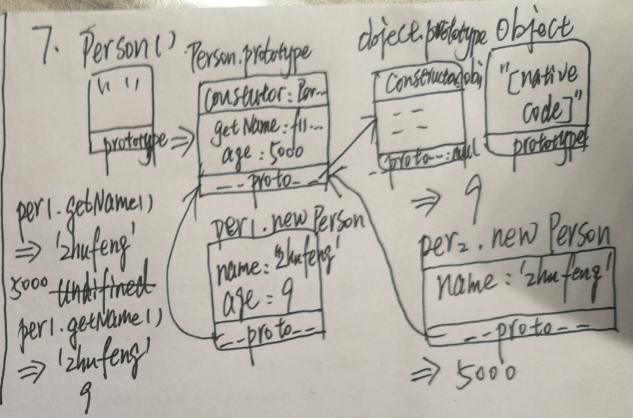 7. Person()
" "
prototype ⇒
Person.prototype
constrtutor: Per...
getName: f11...
age: 5000
__proto__
object.prototype
Constructor: obj
__proto__: null
⇒ 9
Object
"[native
code]"
prototype
per1.getName()
⇒ 'zhufeng'
5000 undifined
per1.getName()
⇒ 'zhufeng'
9
per1.new Person
name: 'zhufeng'
age = 9
__proto__
per2.new Person
name: 'zhufeng'
__proto__
⇒ 5000